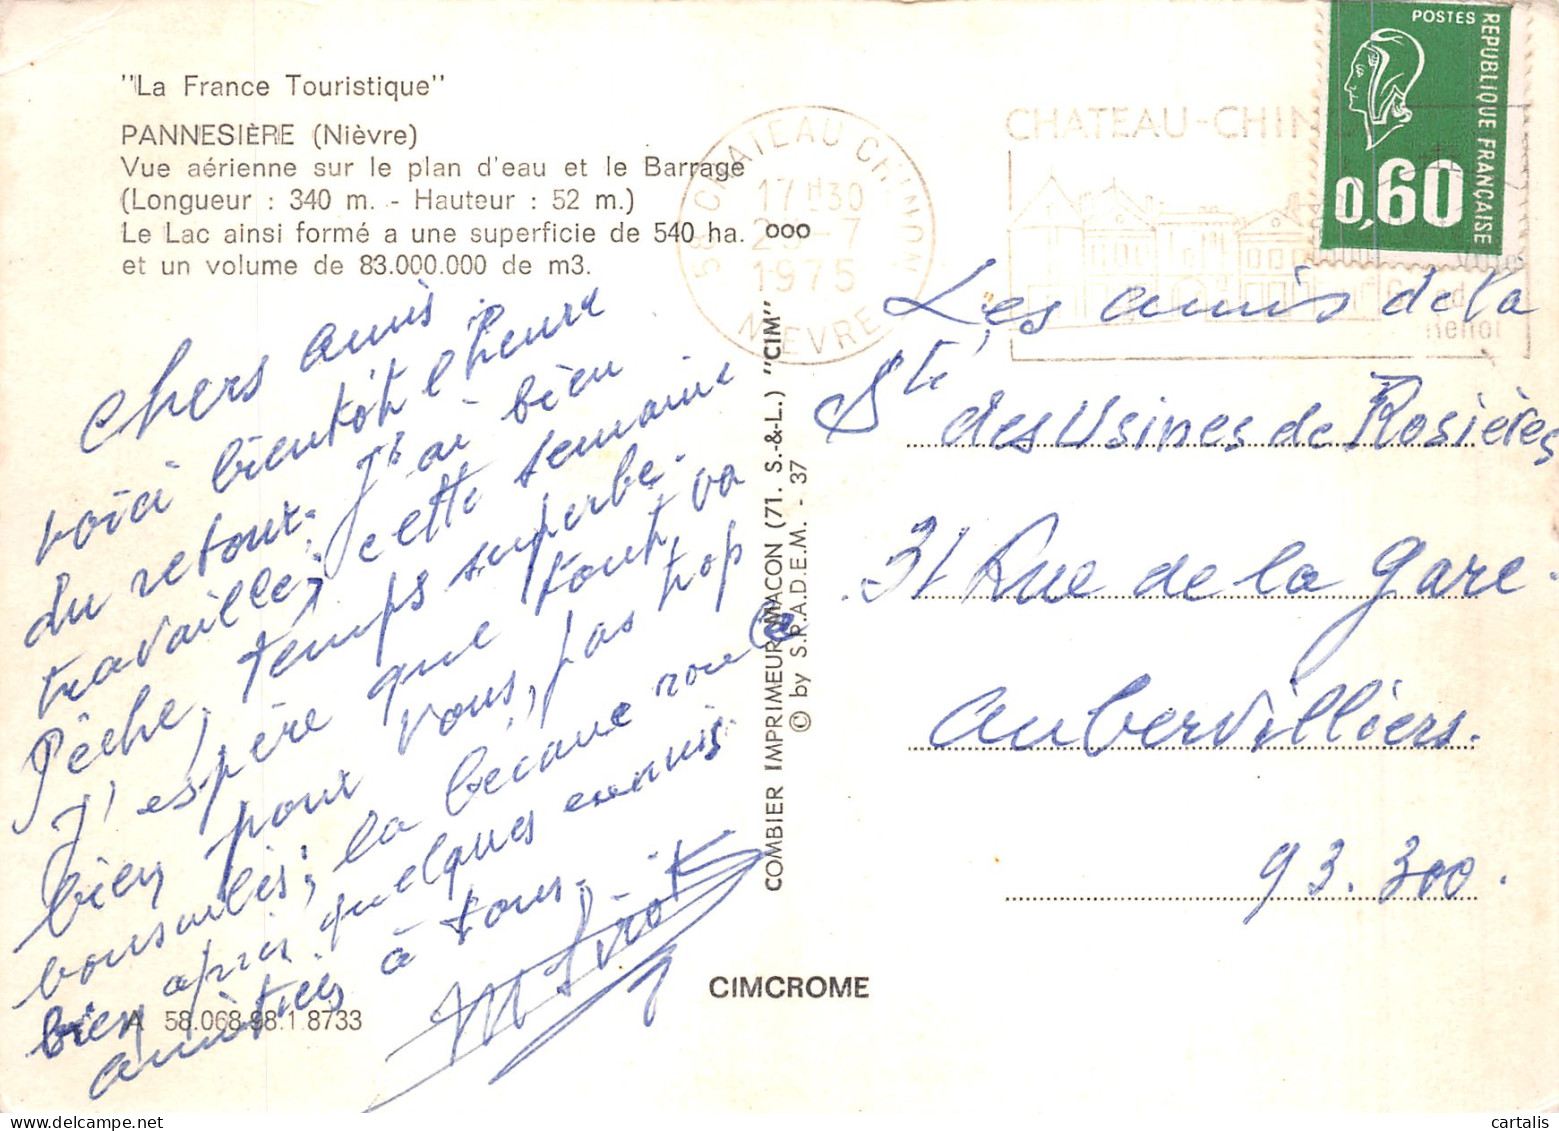 "La France Touristique"
PANNESIÈRE (Nièvre)
Vue aérienne sur le plan d'eau et le Barrage
(Longueur : 340 m. - Hauteur : 52 m.)
Le Lac ainsi formé a une superficie de 540 ha.
et un volume de 83.000.000 de m3.
chers amis
voici bientôt l'heure
du retour. J'ai bien
travaillé cette semaine
Pêche, temps superbe.
J'espère que tout va
bien pour vous, pas trop
bousculés; la bécane roule
bien après quelques ennuis
amitiés à tous.
A 58.068.98.1.8733
COMBIER IMPRIMEUR MACON (71. S.-&-L.) "CIM"
© by S.P.A.D.E.M. - 37
CIMCROME
58 CHATEAU CHINON
17H30
-7
1975
NIEVRE
CHATEAU-CHIN
POSTES
REPUBLIQUE FRANÇAISE
0,60
Les amis de la
Sté des Usines de Rosières
31 Rue de la Gare.
Aubervilliers.
93.300.
cartalis